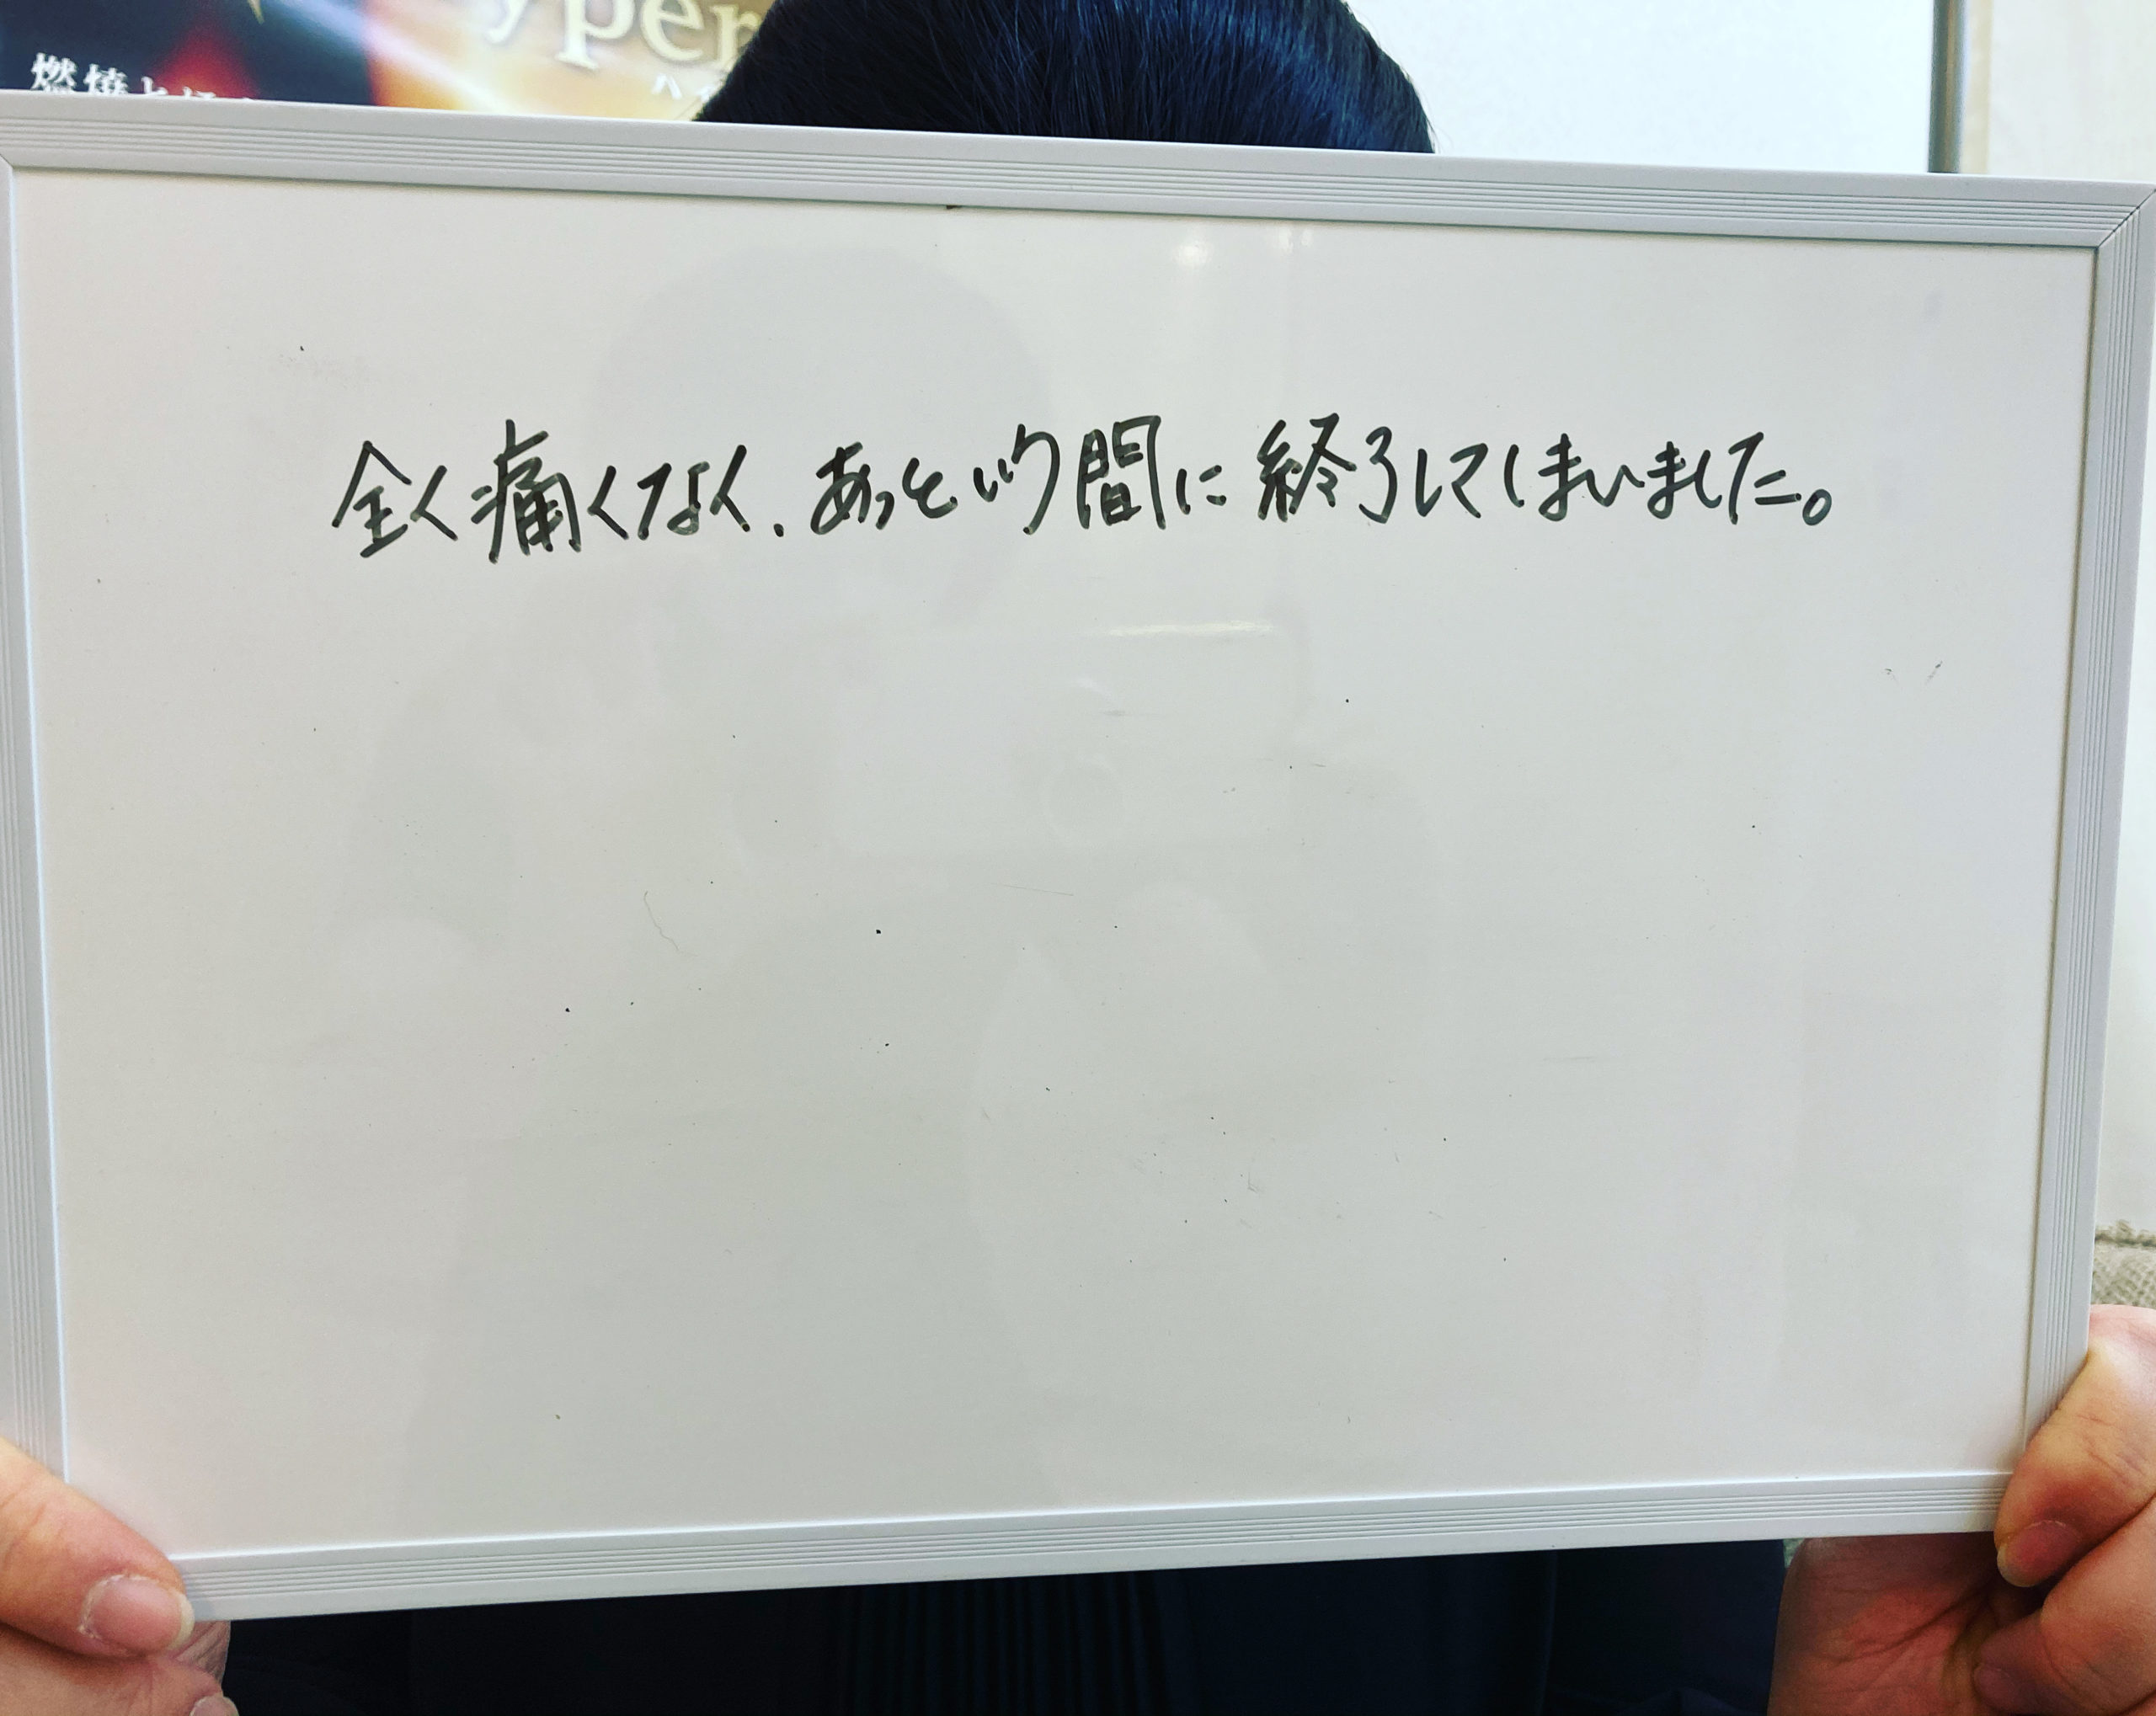 yper
燃焼と
全く痛くなく、あっという間に終了してしまいました。